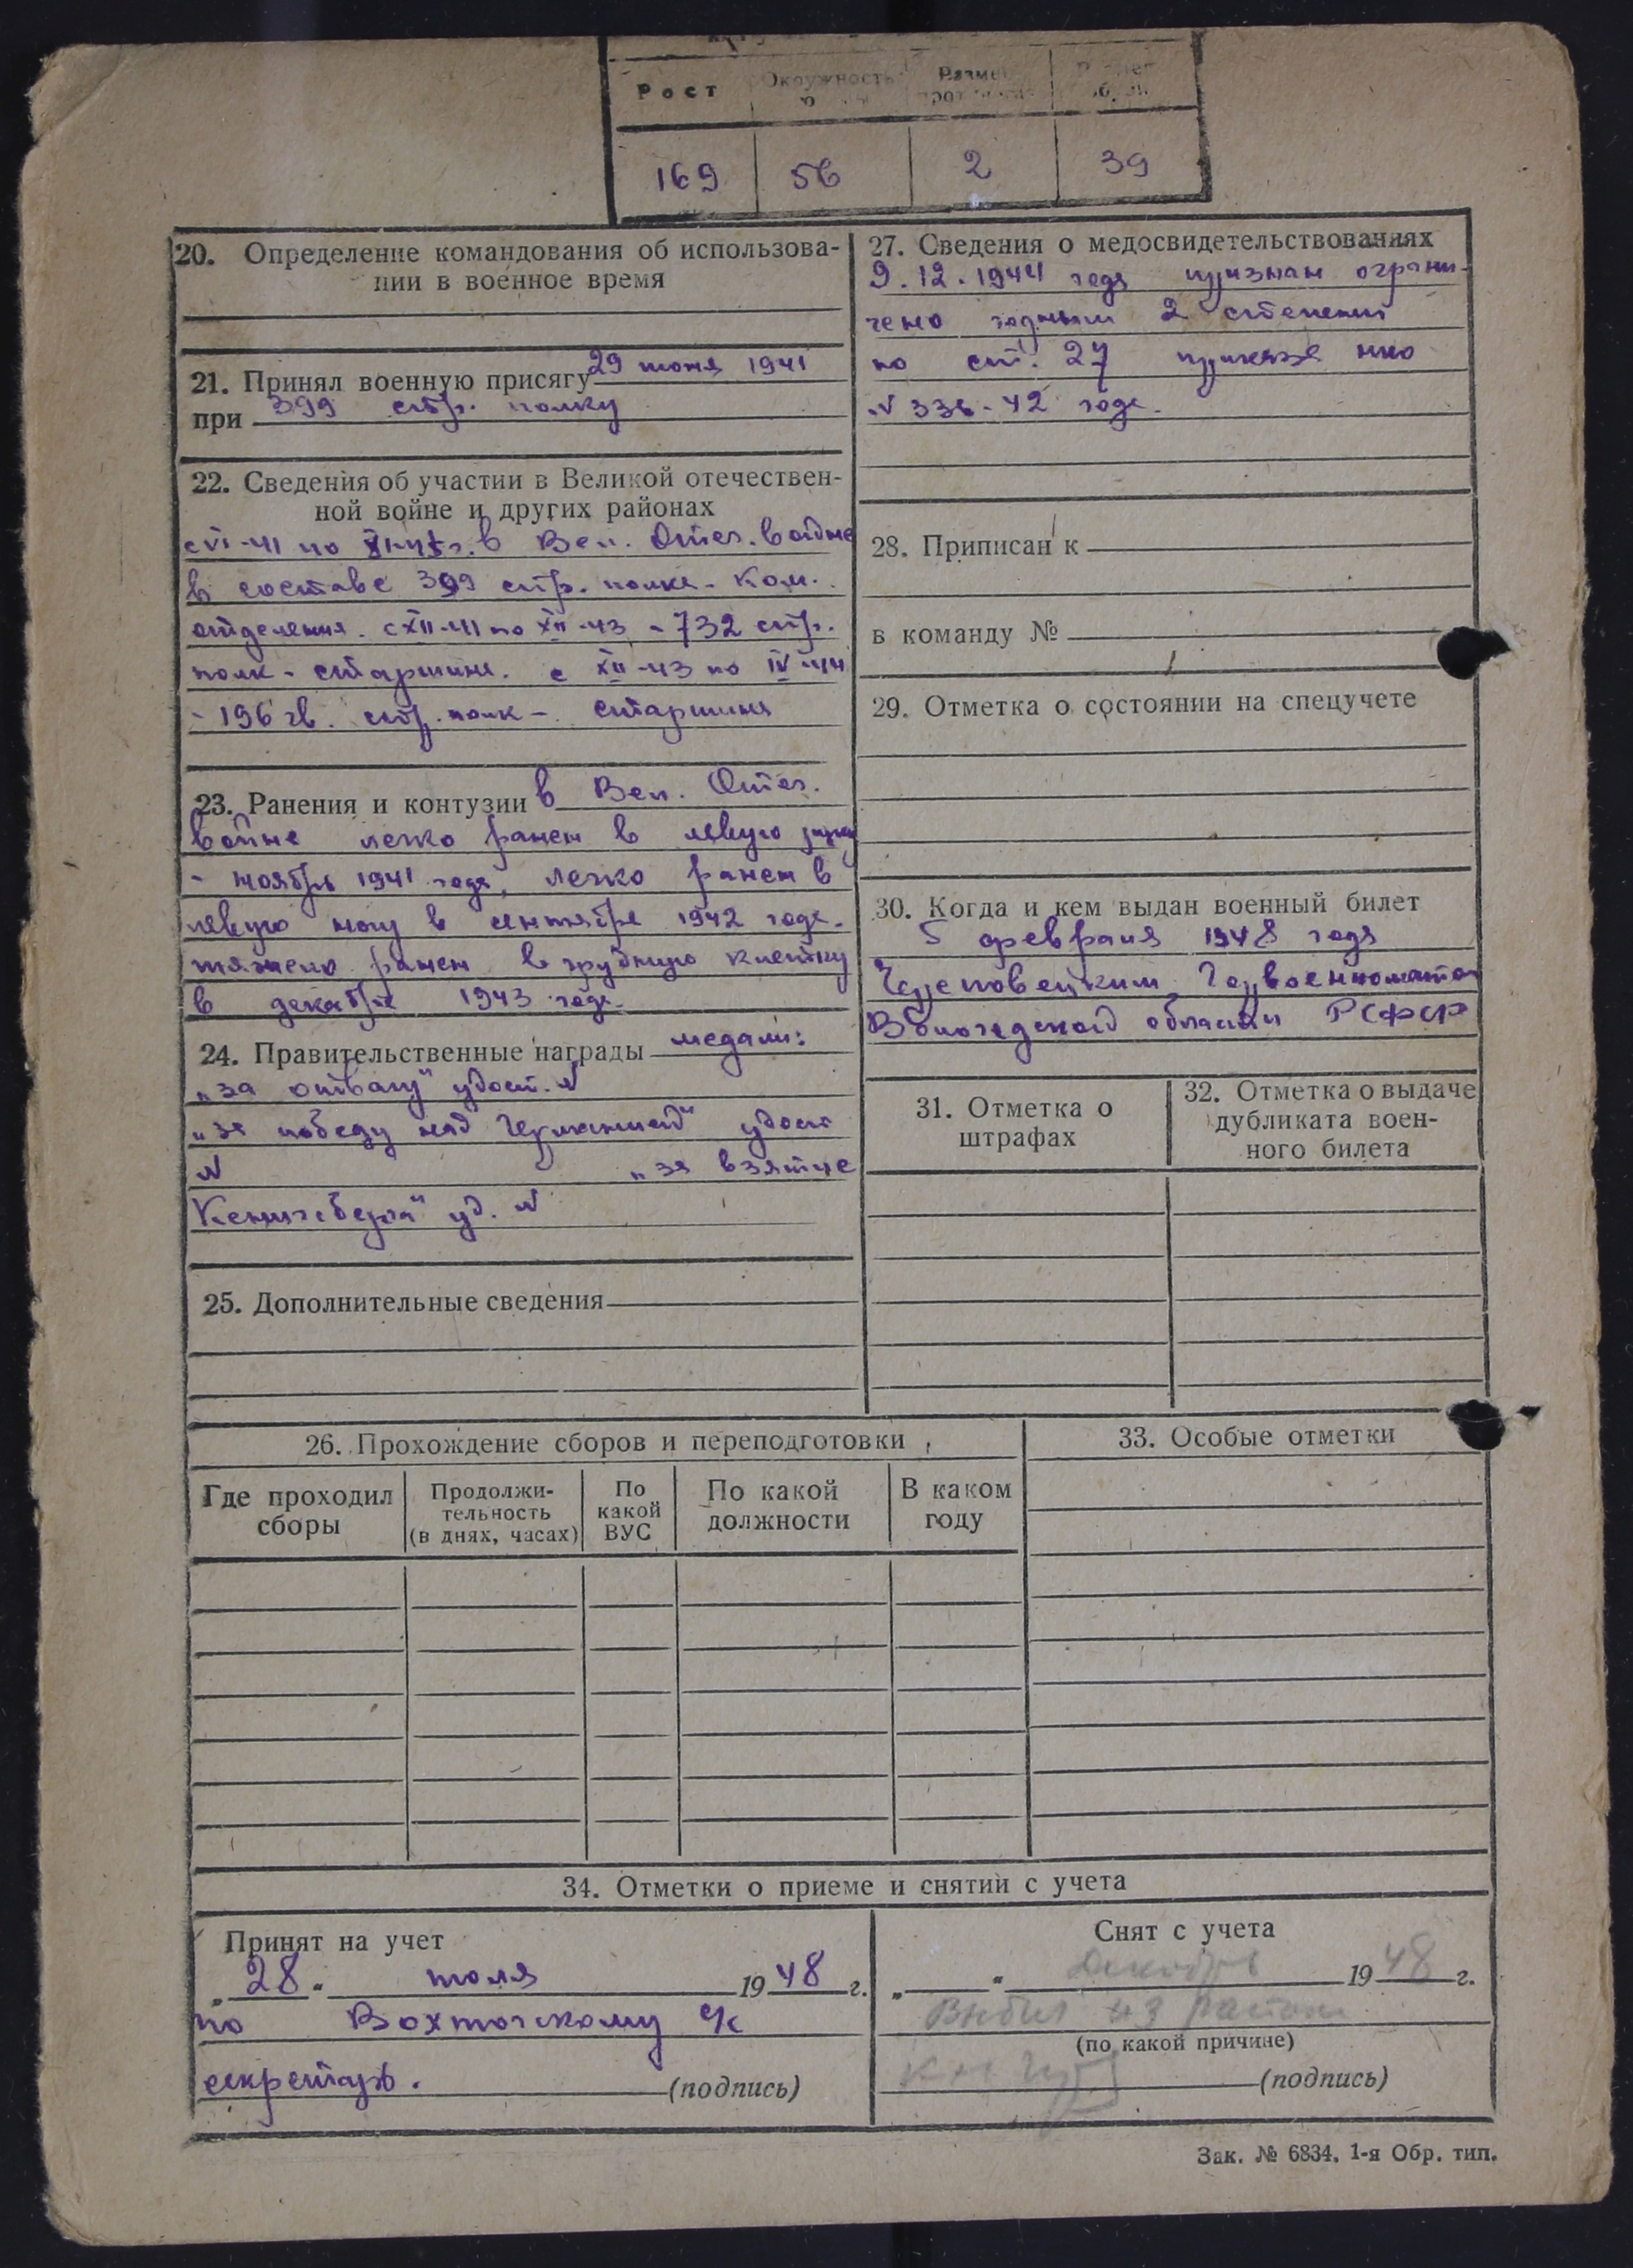 Рост
Окружность
169 56 2 39
20. Определение командования об использова-
нии в военное время
21. Принял военную присягу 29 июня 1941
при 399 стр. полку
22. Сведения об участии в Великой отечествен-
ной войне и других районах
с VI-41 по в Вел. Отеч. войне
в составе 399 стр. полка - Ком.
отделения. с XII-41 по XII-43 - 732 стр.
полк - старшина. с XII-43 по IV-44
- 196 гв. стр. полк - старшина
23. Ранения и контузии в Вел. Отеч.
войне легко ранен в левую руку
- ноябрь 1941 года, легко ранен в
левую ногу в сентябре 1942 года.
тяжело ранен в грудную клетку
в декабре 1943 года.
24. Правительственные награды медали:
„за отвагу" удост. №
„за победу над Германией" удост
№ „за взятие
Кенигсберга" уд. №
25. Дополнительные сведения
26. Прохождение сборов и переподготовки
Где проходил
сборы
Продолжи-
тельность
(в днях, часах)
По
какой
ВУС
По какой
должности
В каком
году
27. Сведения о медосвидетельствованиях
9.12.1944 года признан ограни-
чено годным 2 степени
по ст. 27 приказа нко
№ 336-42 года.
28. Приписан к
в команду №
29. Отметка о состоянии на спецучете
30. Когда и кем выдан военный билет
5 февраля 1948 года
Череповецким Горвоенкоматом
Вологодской области РСФСР
31. Отметка о
штрафах
32. Отметка о выдаче
дубликата воен-
ного билета
33. Особые отметки
34. Отметки о приеме и снятии с учета
Принят на учет
„28" июля 1948 г.
по Вохтожскому с/с
секретарь. (подпись)
Снят с учета
„ " Декабрь 1948 г.
Выбыл из района
(по какой причине)
(подпись)
Зак. № 6834. 1-я Обр. тип.